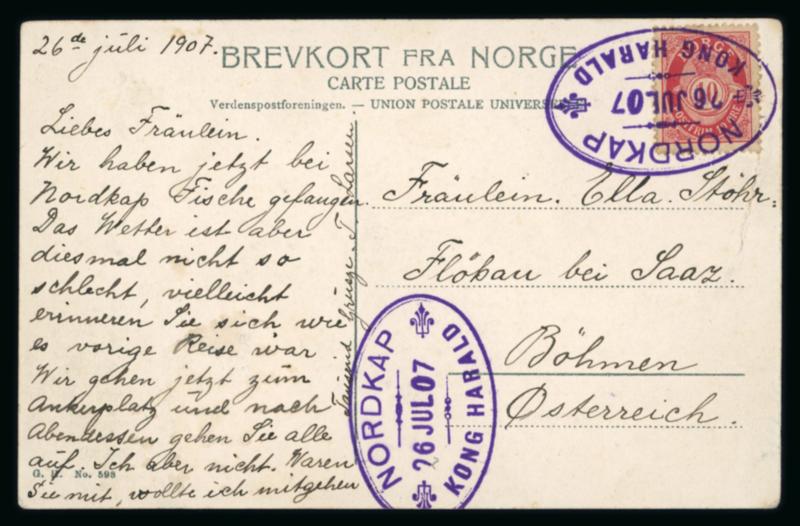 26de juli 1907.
BREVKORT FRA NORGE
CARTE POSTALE
Verdenspostforeningen. — UNION POSTALE UNIVERSE
NORGE
10
NORDKAP
26 JUL 07
KONG HARALD
Liebes Fräulein.
Wir haben jetzt bei
Nordkap Fische gefangen.
Das Wetter ist aber
diesmal nicht so
schlecht, vielleicht
erinneren Sie sich wie
es vorige Reise war
Wir gehen jetzt zum
Ankerplatz und nach
Abendessen gehen Sie alle
auf. Ich aber nicht. Waren
Sie mit, wollte ich mitgehen
Tausend Grusse. T. Larsen
Fräulein. Ella. Stöhr.
Flöhau bei Saaz.
Böhmen
Østerreich.
NORDKAP
26 JUL 07
KONG HARALD
G. H. No. 598